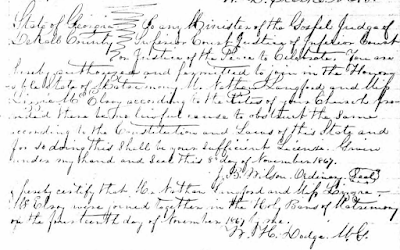 State of Georgia To any Minister of the Gospel Judge of
DeKalb County Superior Court Justice of Inferior Court
or Justice of the Peace to Celebrate. You are
hereby authorized and permitted to join in the Honor
able State of Matrimony Mr Nathan Langford and Miss
Lizzie McElroy according to the Rites of your Church pro
vided there be no lawful cause to obstruct the same
according to the Constitution and Laws of this State and
for so doing this Shall be your sufficient License. Given
under my hand and Seal this 8 day of November 1867.
J. B. Wilson. Ordinary Seal
I hereby certify that Mr Nathan Langford and Miss Lizzie
McElroy were joined together in the Holy Bans of Matrimony
on the fourteenth day of November 1867 by me.
W. H. C. Dodge. M.G.